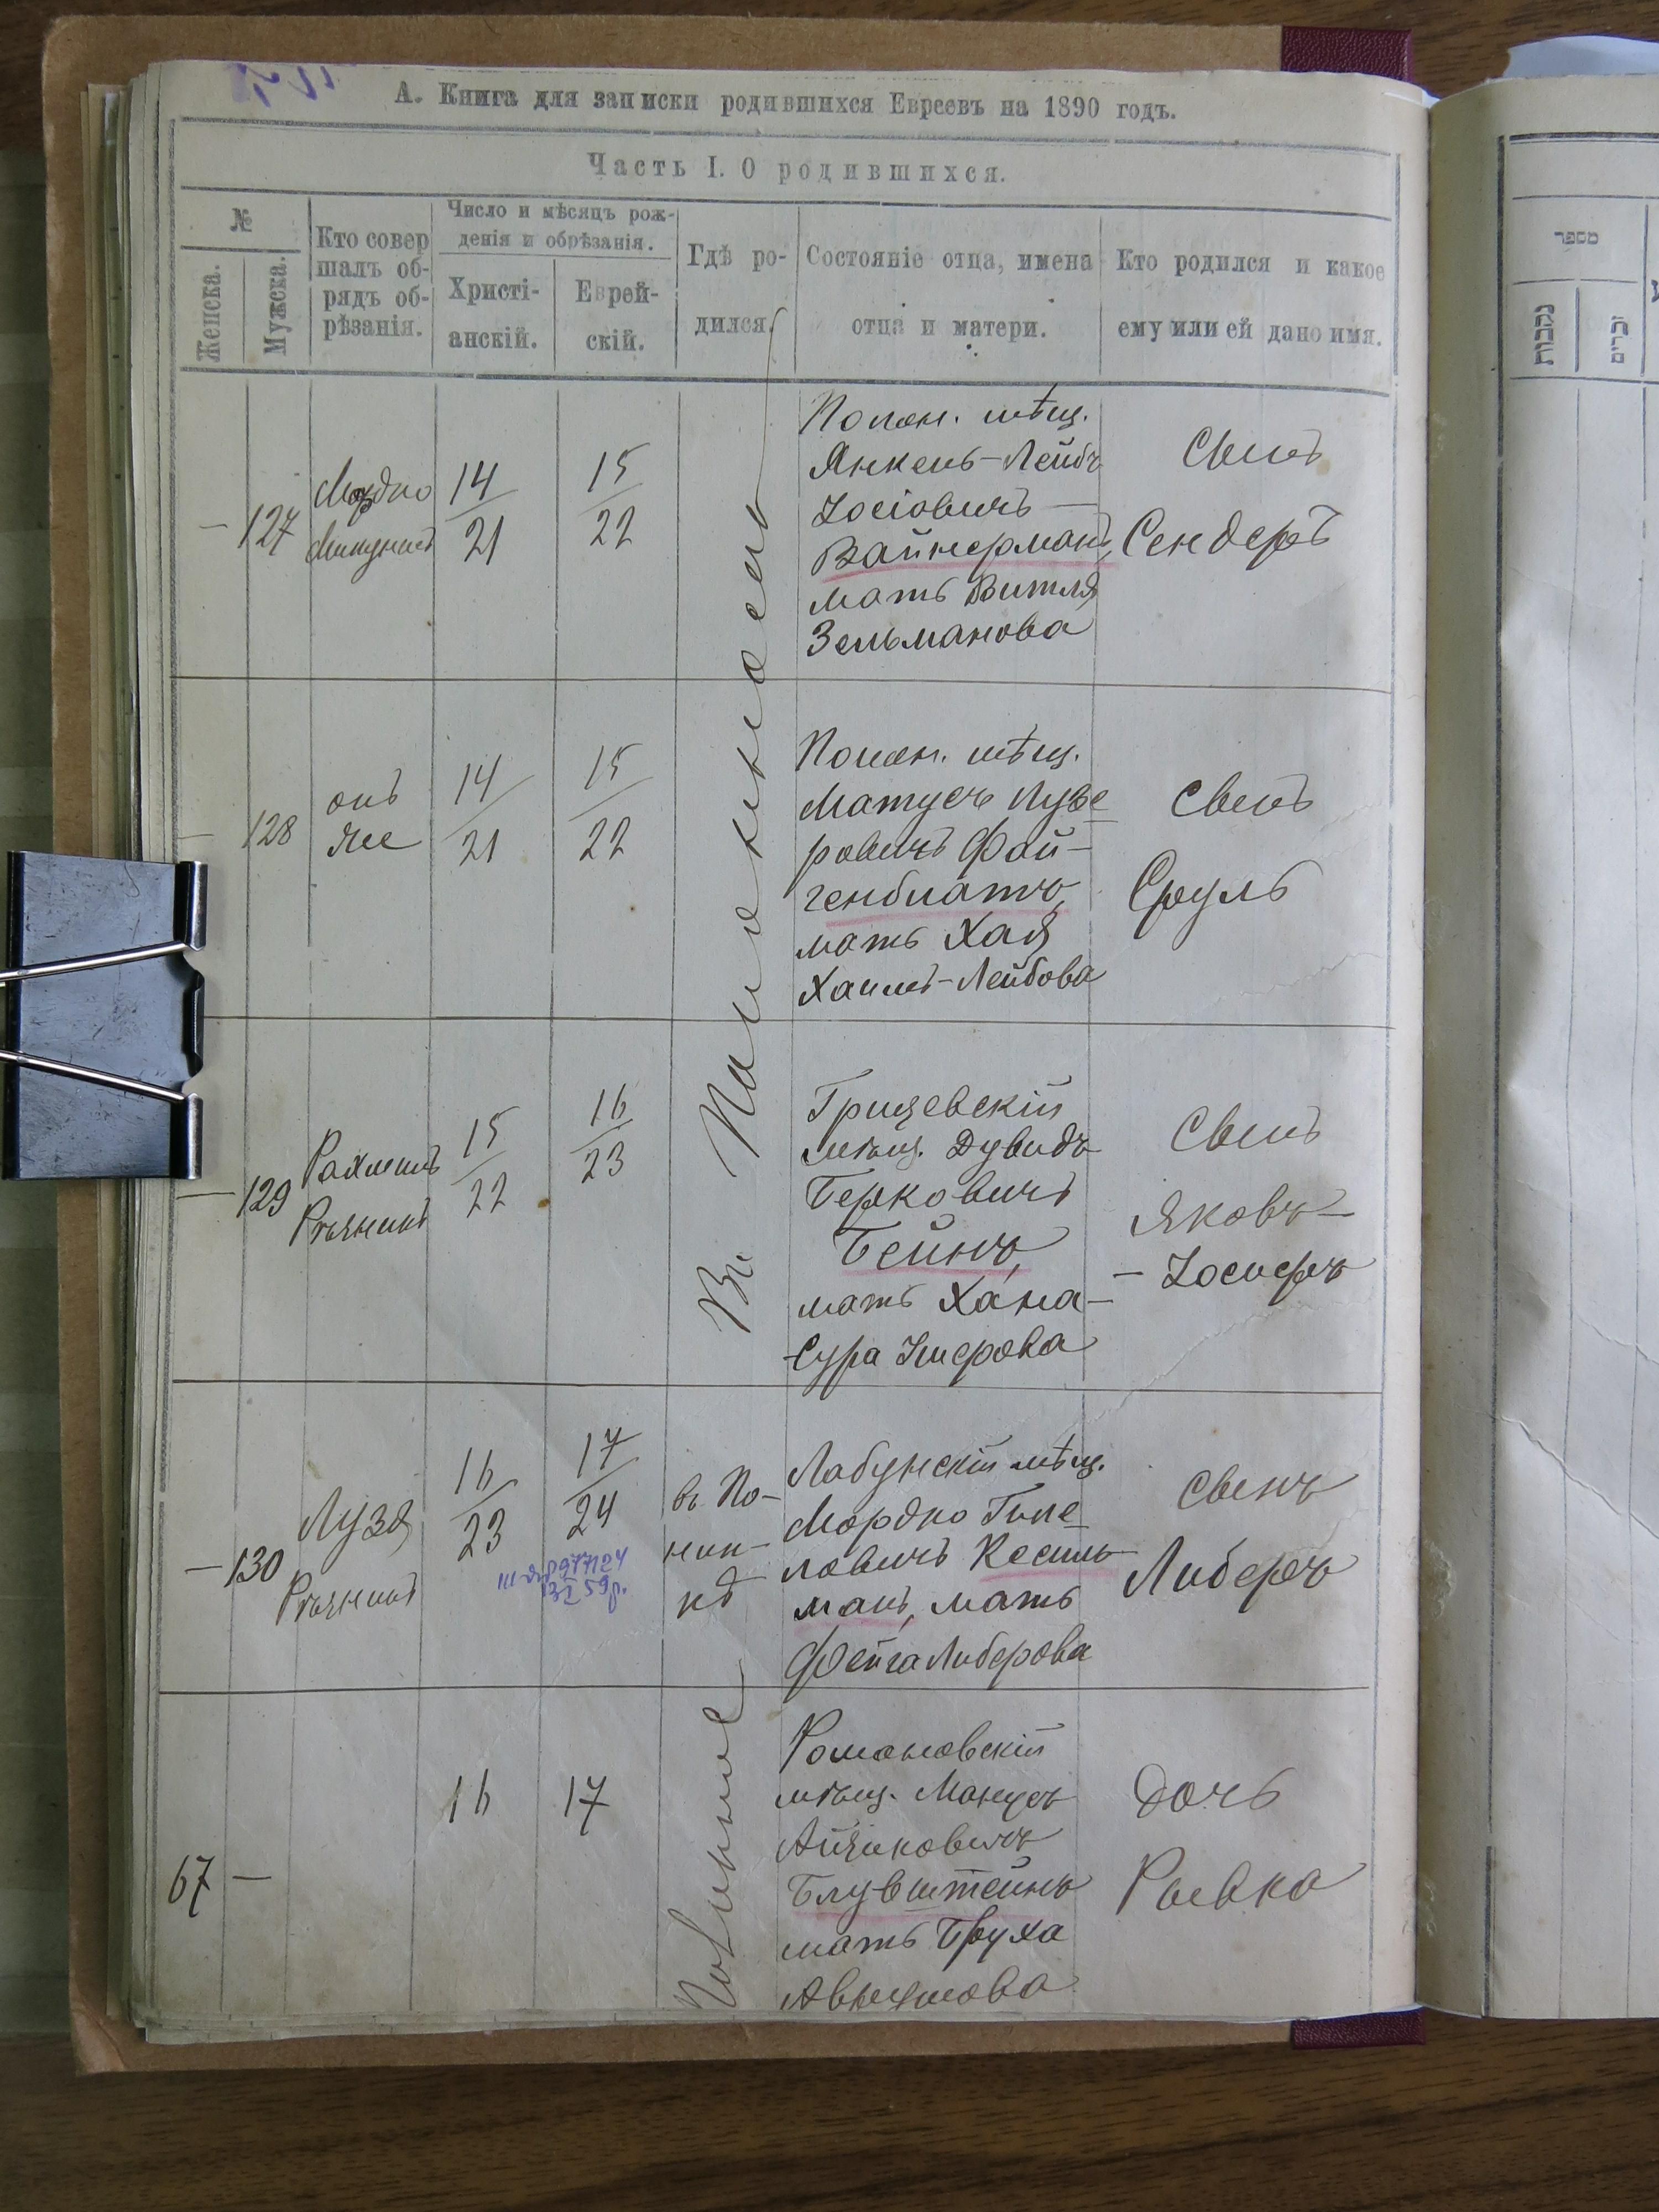 А. Книга для записки родившихся Евреевъ на 1890 годъ.
Часть I. О родившихся.
№
Женска.
Мужска.
Кто совер
шалъ об-
рядъ об-
рѣзанія.
Число и мѣсяцъ рож-
денія и обрѣзанія.
Христі-
анскій.
Еврей-
скій.
Гдѣ ро-
дился.
Состояніе отца, имена
отца и матери.
Кто родился и какое
ему или ей дано имя.
מספר
נקבות
זכרים
— 127
Мордко
14
21
15
22
Полон. мѣщ.
Янкель-Лейбъ
Іосіовичъ
Вайнерманъ,
мать Витля
Зельманова
Сынъ
Сендеръ
— 128
онъ
же
14
21
15
22
Полон. мѣщ.
Матусъ Лузе
ровичъ Фай-
генблатъ,
мать Хая
Хаимъ-Лейбова
Сынъ
Сруль
— 129
Рахмиль
Рѣзникъ
15
22
16
23
Грицевскій
мѣщ. Дувидъ
Берковичъ
Бейнъ,
мать Хана-
-Сура Ушерова
Сынъ
Яковъ-
- Іосифъ
— 130
Лузя
Рѣзникъ
16
23
17
24
въ По-
нин-
кѣ
Лабунскій мѣщ.
Мордко
ловичъ Кесель
манъ, мать
Фейга Либерова
Сынъ
Либеръ
67 —
16
17
Романовскій
мѣщ. Манусъ
Айзиковичъ
Блувштейнъ
мать Бруха
Аврумова
Дочь
Рывка
Въ Полонномъ